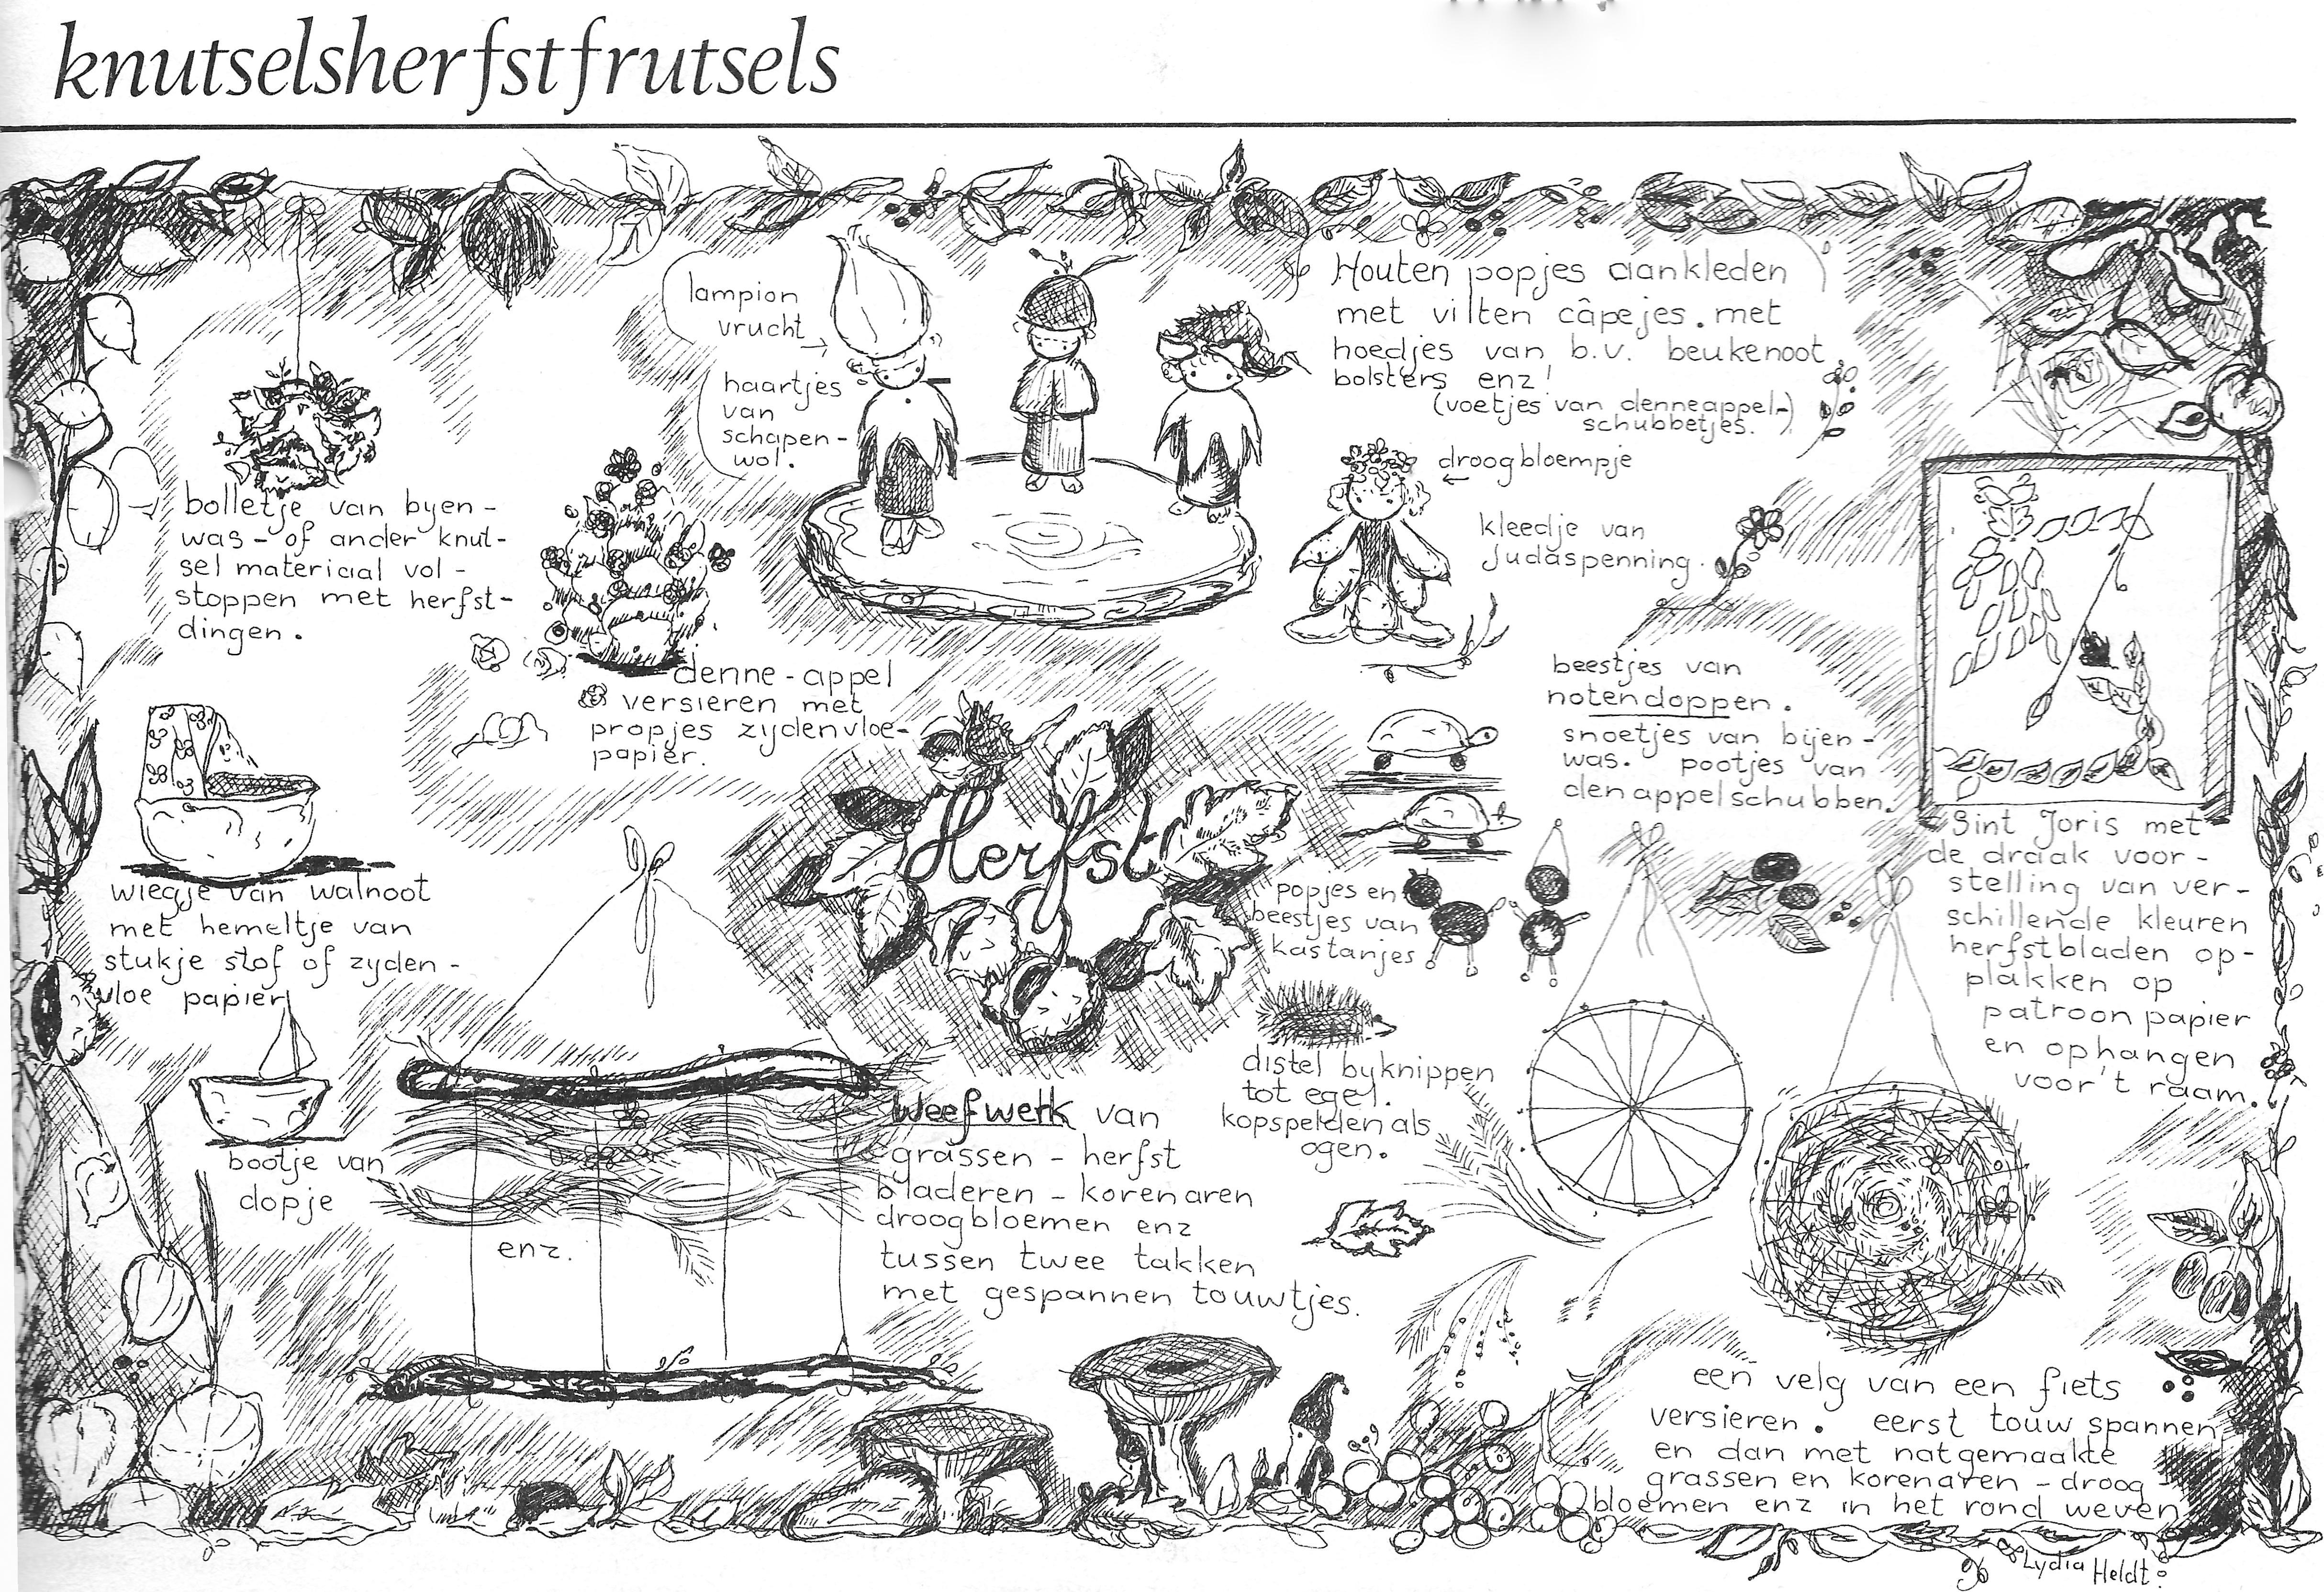 knutselsherfstfrutsels
lampion
vrucht
haartjes
van
schapen-
wol.
Houten popjes aankleden
met vilten câpejes. met
hoedjes van b.v. beukenoot
bolsters enz!
(voetjes van denneappel-)
schubbetjes.
droogbloempje
kleedje van
Judaspenning.
bolletje van byen-
was- of ander knut-
sel materiaal vol-
stoppen met herfst-
dingen.
denne-appel
versieren met
propjes zydenvloe-
papier.
beestjes van
notendoppen.
snoetjes van bijen-
was. pootjes van
denappelschubben.
Herfst
wiegje van walnoot
met hemeltje van
stukje stof of zyden-
vloe papier
bootje van
dopje
popjes en
beestjes van
kastanjes
distel byknippen
tot egel.
kopspelden als
ogen.
Sint Joris met
de draak voor-
stelling van ver-
schillende kleuren
herfstbladen op-
plakken op
patroon papier
en ophangen
voor 't raam.
weefwerk van
grassen - herfst
bladeren - korenaren
droogbloemen enz
tussen twee takken
met gespannen touwtjes.
enz.
een velg van een fiets
versieren. eerst touw spannen
en dan met natgemaakte
grassen en korenaren - droog-
bloemen enz in het rond weven
Lydia Heldt